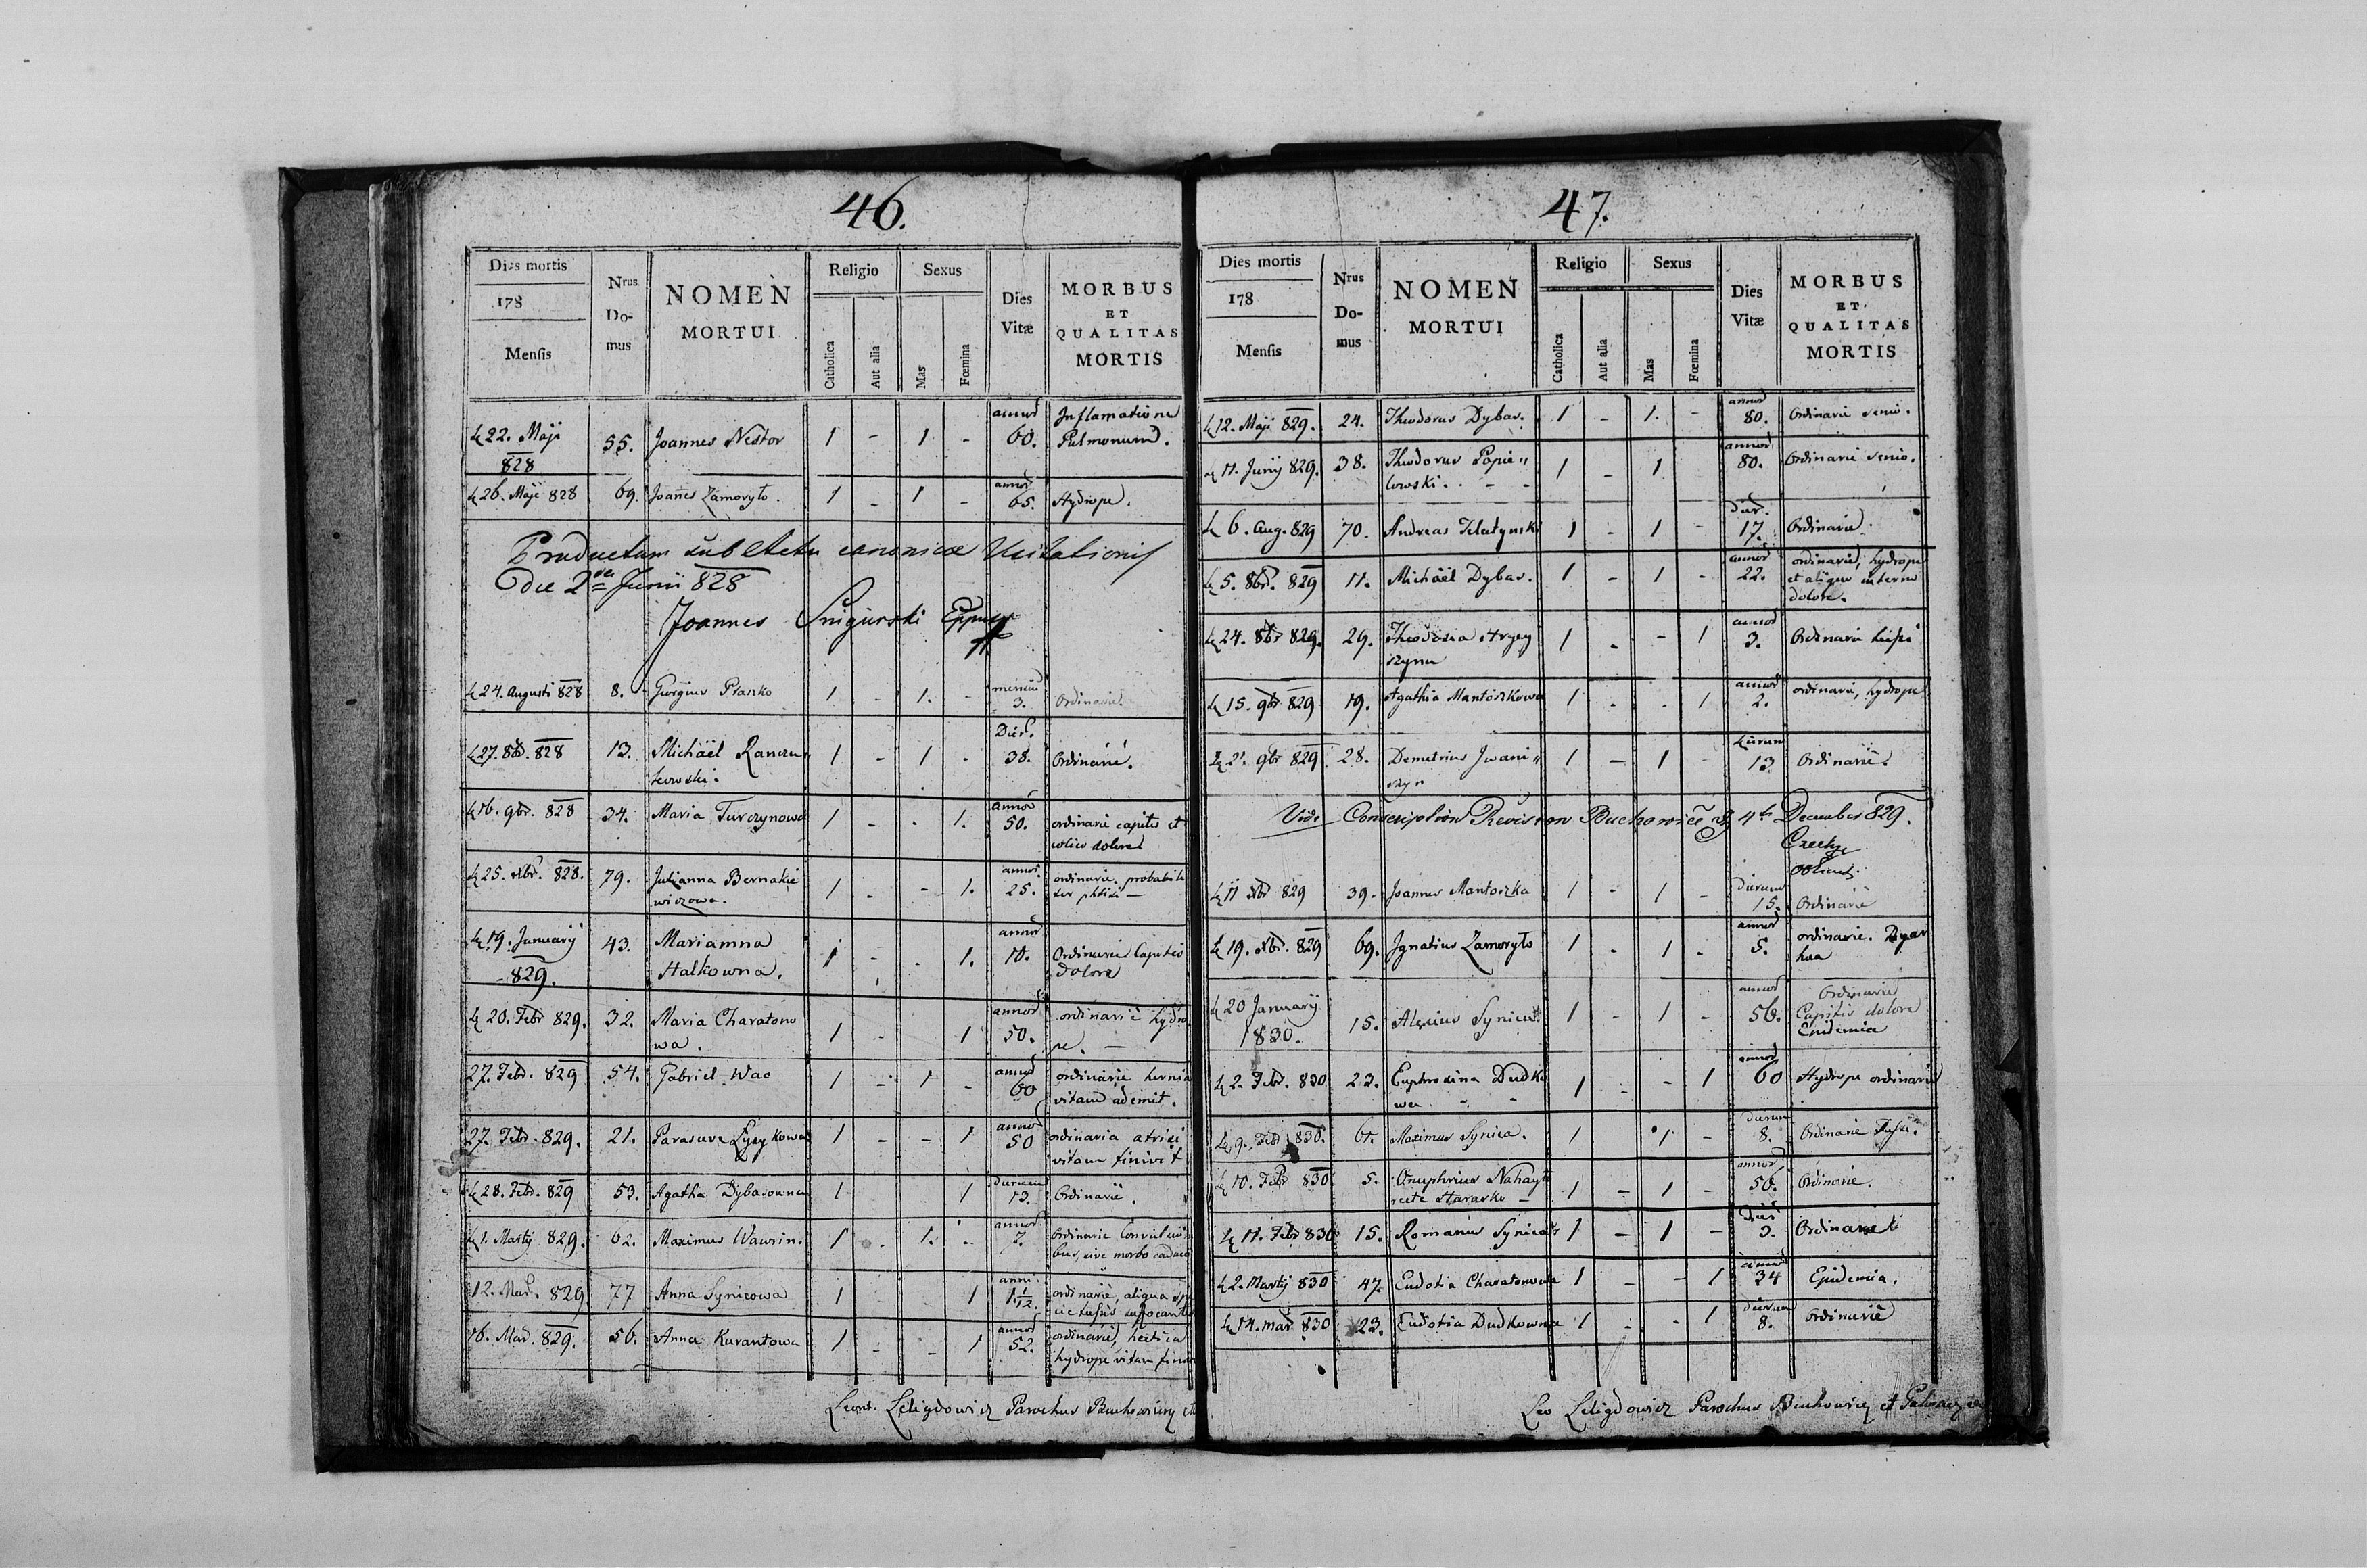 46.
Dies mortis
178
Mensis
Nrus
Do-
mus
NOMEN
MORTUI
Religio
Catholica
Aut alia
Sexus
Mas
Fœmina
Dies
Vitæ
MORBUS
ET
QUALITAS
MORTIS
22. Maji 828 55. Joannes Nestor 1 - 1 - annor 60. Inflamatione
Pulmonum.
26. Maji 828 69. Joañes Zamoryło. 1 - 1 - annor 65. Hydrope.
Productum sub Actu canonicæ Visitationis
die 2da Junii 828
Joannes Snigurski Eppus
24. Augusti 828 8. Georgius Ptaszko 1 - 1. - mensium 3. Ordinarie.
27. 8br. 828 13. Michäel Ranczu„ 1 - 1 - Dier. 38. Ordinarie.
kowski.
16. 9br. 828 34. Maria Turczynowa 1 - - 1. annor 50. ordinarie capitis et
colico dolore
25. xbr. 828. 79. Julianna Bernakie 1 - - 1. annor. 25. ordinarie. probabili
wiczowa. ter phtisi —
19. Januarij 829. 43. Marianna 1 - - 1. annor 10. Ordinarie Capitis
Halkowna. dolore
20. Febr 829. 32. Maria Charatono 1 - 1 annor 50. ordinarie hydro
wa. pe. —
27. Febr. 829 54. Gabriel Wac 1 - 1 - annor 60 ordinarie hernia
vitam ademit.
27. Febr. 829. 21. Parasceva Łysykowa 1 - - 1 annor 50 ordinaria
vitam finivit
28. Febr. 829 53. Agatha Dybasowna 1 1 dierum 13. Ordinarie.
1. Martij 829. 62. Maximus Wawrin. 1 - 1. - annor 7. Ordinarie Convulsio
bus, sive morbo caduco
12. Mar. 829 77 Anna Synicowa 1 1 anni 1 1/12. ordinarie, aliqua spe
cie tussis suffocante
16. Mar. 829. 56. Anna Kurantowa 1 - - 1 annor 52. ordinarie, hectica
hydrope vitam fini
Leligdowicz Parochus
47.
Dies mortis
178
Mensis
Nrus
Do-
mus
NOMEN
MORTUI
Religio
Catholica
Aut alia
Sexus
Mas
Fœmina
Dies
Vitæ
MORBUS
ET
QUALITAS
MORTIS
12. Maji 829. 24. Theodorus Dybas. 1 - 1. - annor 80. Ordinarie senio.
11. Junij 829. 38. Theodorus Papie„ 1 - 1 annor 80. Ordinarie senio.
lowski. - -
6. Aug. 829 70. Andreas 1 - 1 - dier. 17. Ordinarie.
5. 8br. 829 11. Michäel Dybas. 1 - 1 - annor 22. ordinarie, hydrope
et aliquo interno
dolore.
24. 8br 829. 29. Theodosia Hrycy 1 - - 1 annor 3. Ordinarie tussi
szyna
15. 9br 829 19. Agathia Mantoszkowa 1 - - 1 annor 2. ordinarie, hydrope
2. 9br 829 28. Demetrius Iwani„ 1 - 1 - dierum 13 Ordinarie.
szyn
Vidi Conscription Revision 4t December 829.
11 xbr 829 39. Joannes Mantoszka 1 - 1 - dierum 15. Ordinarie
19. xbr. 829 69. Ignatius Zamoryło 1 - 1 - annor 5. ordinarie. Dyar
hea
20 Januarij 1830. 15. Alexius 1 - 1 - annor 56. Ordinarie
Capitis dolore
Epidemia
2. Febr. 830 23. Euphrosina Dudko 1 - - 1 annor 60 Hydrope ordinarie
wa - -
9. Febr 830. 61. Maximus Synica. 1 1 - dierum 8. Ordinarie Tussi.
10. Febr 830 5. Onuphrius 1 - 1 - annor 56. Ordinarie.
recte Harasko —
11. Febr 830 15. Romanus 1 - 1 - dies 3. Ordinarie
2. Martij 830 47. Eudotia Charatonowa 1 - - 1 annor 34 Epidemia.
14. mar 830 23. Eudotia Dudkowna 1 - - 1 dierum 8. Ordinarie
Leo Leligdowicz Parochus